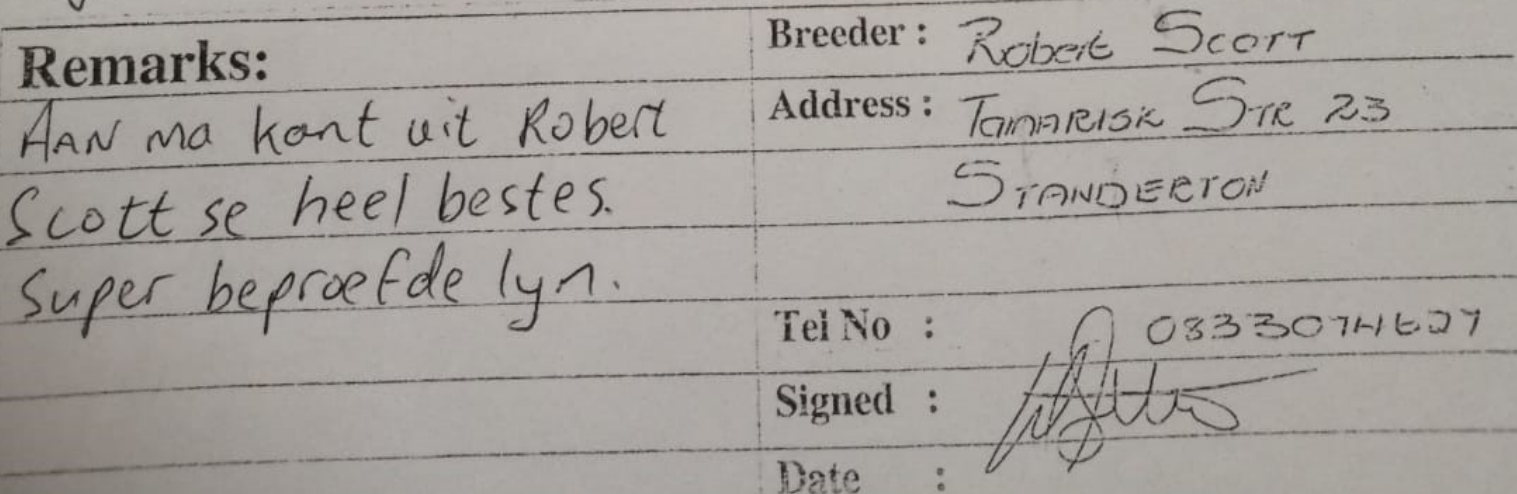 Remarks:
AAN ma kant uit Robert
Scott se heel bestes.
Super beproefde lyn.
Breeder : Robert Scott
Address : TAMARISK STR 23
STANDERTON
Tel No :
Signed :
Date :